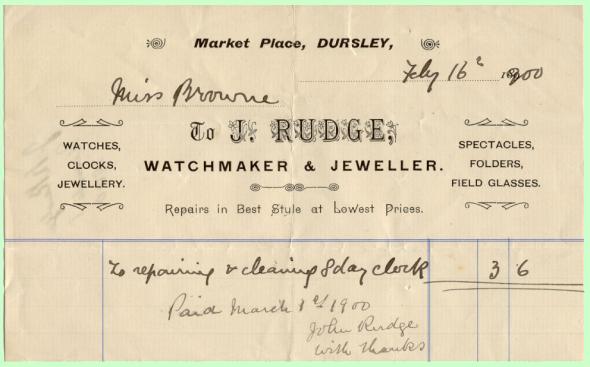 Market Place, DURSLEY,
Feby 16th 1900
Miss Browne
To J. RUDGE,
WATCHMAKER & JEWELLER.
WATCHES,
CLOCKS,
JEWELLERY.
SPECTACLES,
FOLDERS,
FIELD GLASSES.
Repairs in Best Style at Lowest Prices.
To repairing & cleaning 8 day clock 3 6
Paid March 1st 1900
John Rudge
with thanks